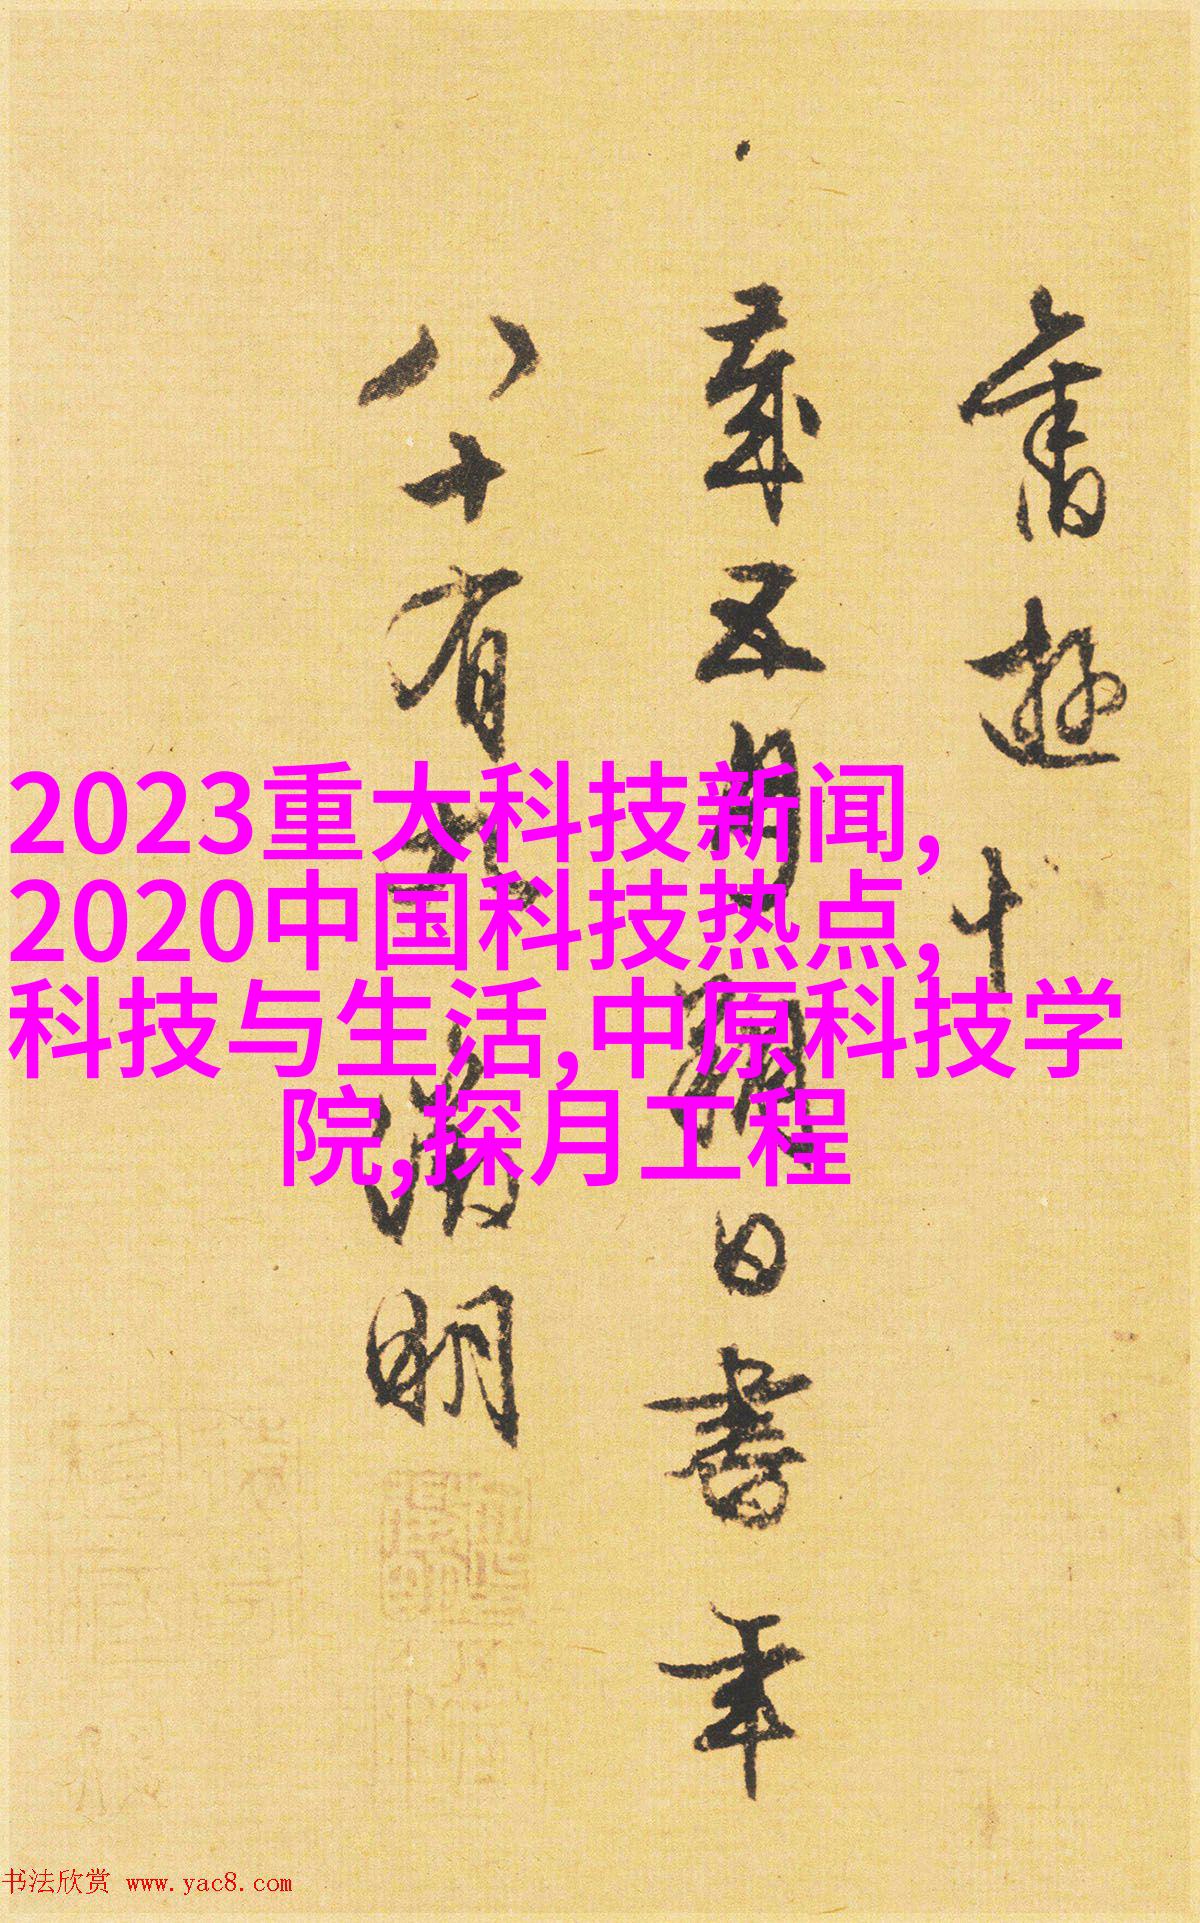 舊遊十
歲五月朔日書年
八十有九徵明
2023重大科技新闻,
2020中国科技热点,
科技与生活,中原科技学
院,探月工程
书法欣赏 www.yac8.com